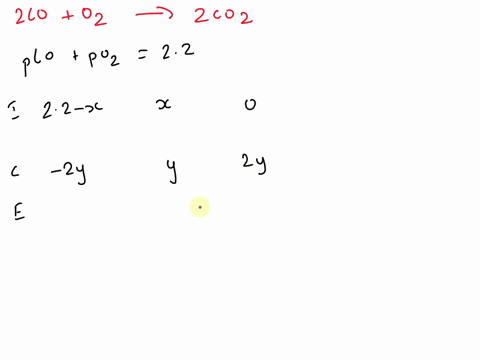 2CO + O2 → 2CO2
pCO + pO2 = 2.2
I 2.2-x x 0
C -2y y 2y
E